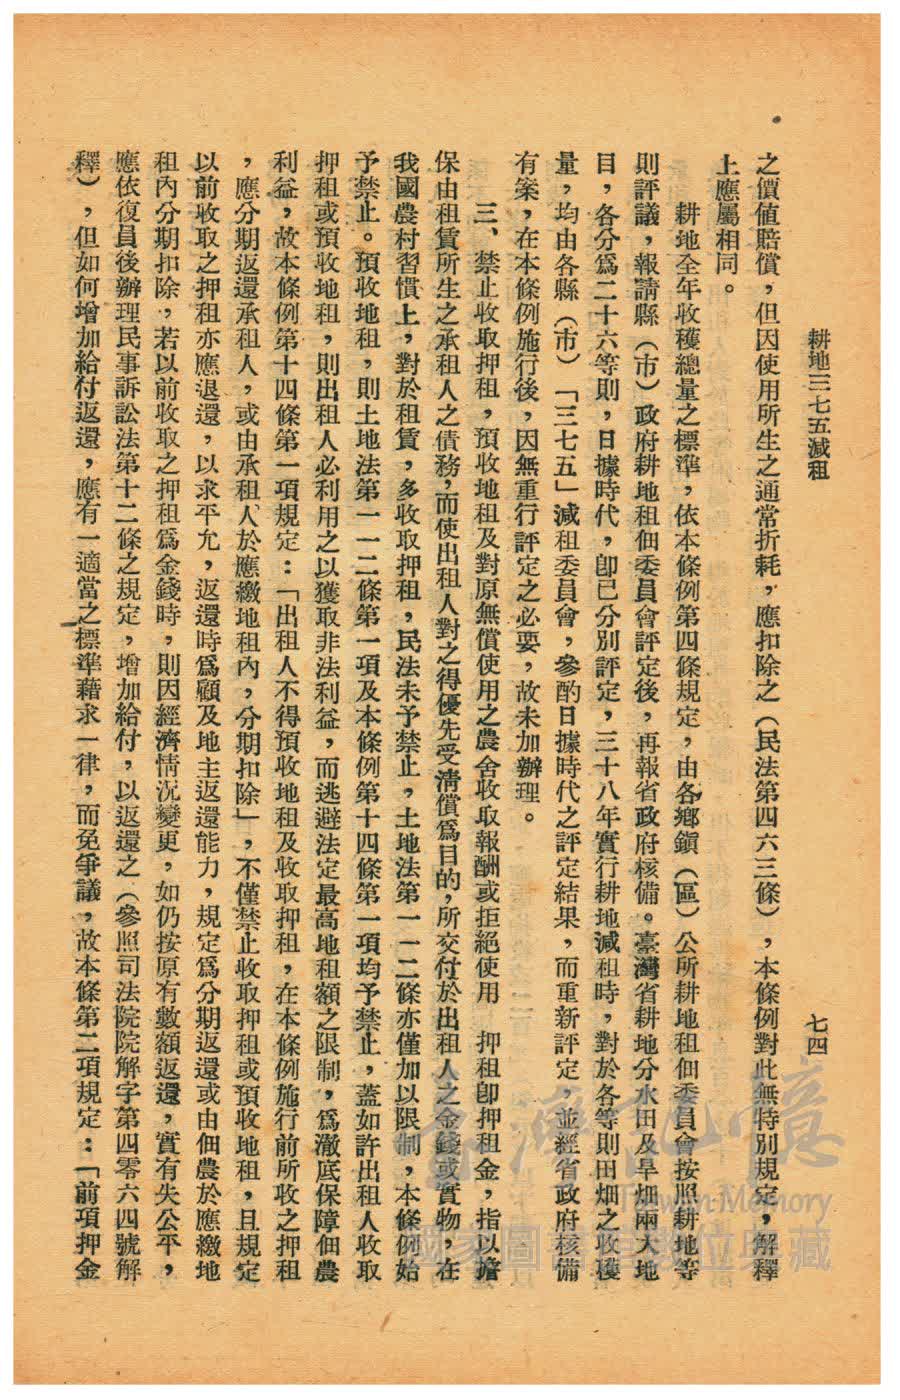 耕地三七五減租
七四
之價値賠償，但因使用所生之通常折耗，應扣除之（民法第四六三條），本條例對此無特別規定，解釋
上應屬相同。
耕地全年收穫總量之標準，依本條例第四條規定，由各鄉鎭（區）公所耕地租佃委員會按照耕地等
則評議，報請縣（市）政府耕地租佃委員會評定後，再報省政府核備。臺灣省耕地分水田及旱畑兩大地
目，各分爲二十六等則，日據時代，卽已分別評定，三十八年實行耕地減租時，對於各等則田畑之收穫
量，均由各縣（市）「三七五」減租委員會，參酌日據時代之評定結果，而重新評定，並經省政府核備
有案，在本條例施行後，因無重行評定之必要，故未加辦理。
三、禁止收取押租，預收地租及對原無償使用之農舍收取報酬或拒絕使用　押租卽押租金，指以擔
保由租賃所生之承租人之債務，而使出租人對之得優先受淸償爲目的，所交付於出租人之金錢或實物，在
我國農村習慣上，對於租賃，多收取押租，民法未予禁止，土地法第一一二條亦僅加以限制，本條例始
予禁止。預收地租，則土地法第一一二條第一項及本條例第十四條第一項均予禁止，蓋如許出租人收取
押租或預收地租，則出租人必利用之以獲取非法利益，而逃避法定最高地租額之限制，爲澈底保障佃農
利益，故本條例第十四條第一項規定：「出租人不得預收地租及收取押租，在本條例施行前所收之押租
，應分期返還承租人，或由承租人於應繳地租內，分期扣除」，不僅禁止收取押租或預收地租，且規定
以前收取之押租亦應退還，以求平允，返還時爲顧及地主返還能力，規定爲分期返還或由佃農於應繳地
租內分期扣除，若以前收取之押租爲金錢時，則因經濟情況變更，如仍按原有數額返還，實有失公平，
應依復員後辦理民事訴訟法第十二條之規定，增加給付，以返還之（參照司法院院解字第四零六四號解
釋），但如何增加給付返還，應有一適當之標準藉求一律，而免爭議，故本條第二項規定：「前項押金
臺灣記憶
Taiwan Memory
國家圖書館數位典藏